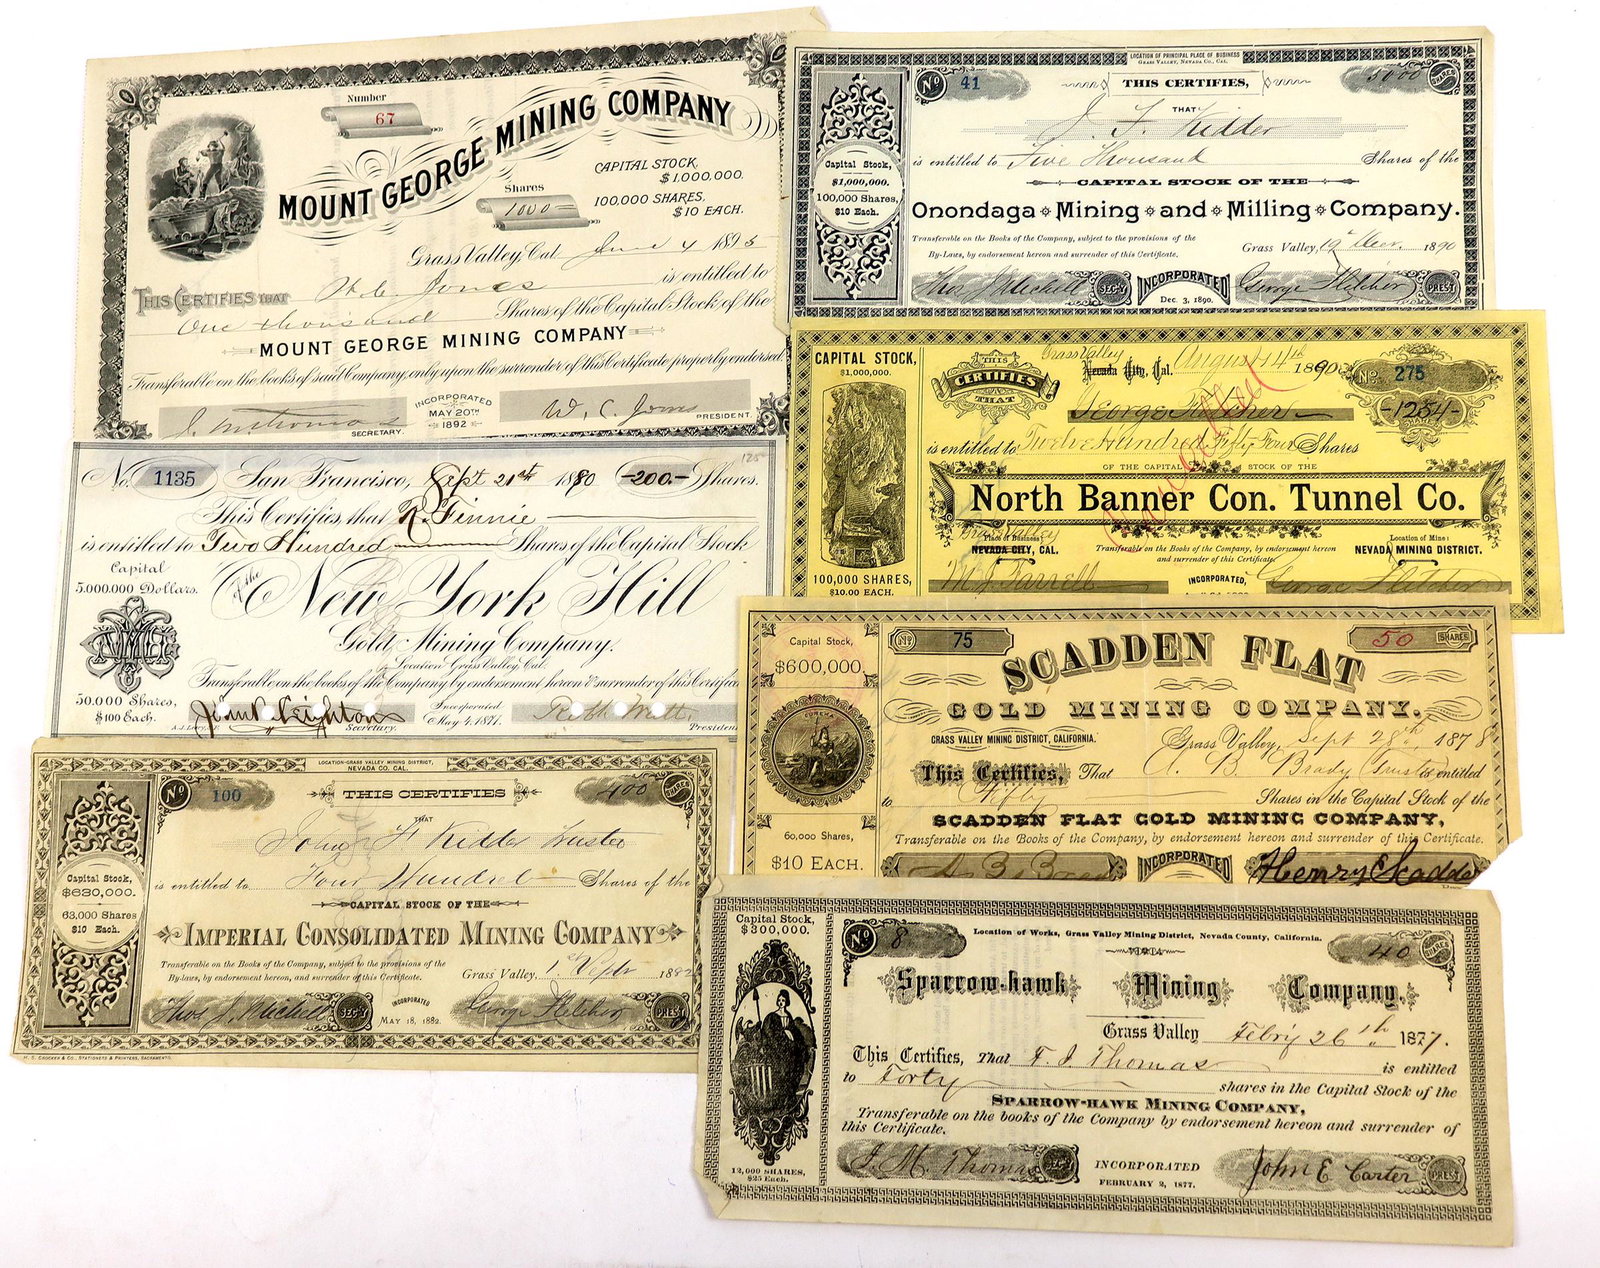 Number
67
MOUNT GEORGE MINING COMPANY
CAPITAL STOCK,
$1,000,000.
Shares
1000
100,000 SHARES,
$10 EACH.
Grass Valley, Cal. June 4 1895
THIS CERTIFIES THAT W. C. Jones is entitled to
One thousand Shares of the Capital Stock of the
MOUNT GEORGE MINING COMPANY
Transferable on the books of said Company, only upon the surrender of this Certificate properly endorsed.
SECRETARY.
INCORPORATED
MAY 20TH
1892
W. C. Jones
PRESIDENT.
LOCATION OF PRINCIPAL PLACE OF BUSINESS
GRASS VALLEY, NEVADA CO. CAL.
No 41
THIS CERTIFIES,
5000 SHARES
THAT
J. F. Kidder
is entitled to Five Thousand Shares of the
CAPITAL STOCK OF THE
Onondaga Mining and Milling Company.
Capital Stock,
$1,000,000.
100,000 Shares,
$10 Each.
Transferable on the Books of the Company, subject to the provisions of the
By-Laws, by endorsement hereon and surrender of this Certificate.
Grass Valley, 19 Decr. 1890
Thos J. Mitchell SEC'Y
INCORPORATED
Dec. 3, 1890.
George Fletcher PREST
CAPITAL STOCK,
$1,000,000.
THIS
CERTIFIES
THAT
Grass Valley
Nevada City, Cal. August 14th 1890
No. 275
George Fletcher
-1254-
is entitled to Twelve Hundred Fifty Four Shares
OF THE CAPITAL STOCK OF THE
North Banner Con. Tunnel Co.
Cancelled
Place of Business
Grass Valley
NEVADA CITY, CAL.
Transferable on the Books of the Company, by endorsement hereon
and surrender of this Certificate.
Location of Mine:
NEVADA MINING DISTRICT.
100,000 SHARES,
$10.00 EACH.
M. J. Farrell
INCORPORATED,
George Fletcher
125
No. 1135
San Francisco, Sept 21st 1880
-200.- Shares.
This Certifies that R. Finnie
is entitled to Two Hundred Shares of the Capital Stock
Capital
5.000.000 Dollars.
of the
New York Hill
Gold Mining Company.
Location Grass Valley, Cal.
Transferable on the books of the Company by endorsement hereon & surrender of this Certificate
50.000 Shares,
$100 Each.
John R. Leighton
Secretary.
Incorporated
May 4. 1871.
President
Capital Stock,
$600,000.
No 75
50 SHARES
SCADDEN FLAT
GOLD MINING COMPANY.
EUREKA
GRASS VALLEY MINING DISTRICT, CALIFORNIA.
Grass Valley, Sept 28th, 1878
This Certifies, That A. B. Brady Trustee entitled
to Fifty Shares in the Capital Stock of the
SCADDEN FLAT GOLD MINING COMPANY,
Transferable on the Books of the Company, by endorsement hereon and surrender of this Certificate.
60,000 Shares,
$10 EACH.
INCORPORATED
Henry Scadde
LOCATION-GRASS VALLEY MINING DISTRICT,
NEVADA CO. CAL.
No 100
THIS CERTIFIES
400 SHARES
THAT
John F Kidder Trustee
is entitled to Four Hundred Shares of the
CAPITAL STOCK OF THE
IMPERIAL CONSOLIDATED MINING COMPANY
Capital Stock,
$630,000.
63,000 Shares
$10 Each.
Transferable on the Books of the Company, subject to the provisions of the
By-laws, by endorsement hereon, and surrender of this Certificate.
Grass Valley, 1st Septr 1882
Thos J. Mitchell SEC'Y
INCORPORATED
MAY 18, 1882.
George Fletcher PREST
H. S. CROCKER & CO., STATIONERS & PRINTERS, SACRAMENTO.
Capital Stock,
$300,000.
No 8
Location of Works, Grass Valley Mining District, Nevada County, California.
40 SHARES
Sparrow-hawk Mining Company,
Grass Valley Febr'y 26th 1877.
This Certifies, That F. J. Thomas is entitled
to Forty shares in the Capital Stock of the
SPARROW-HAWK MINING COMPANY,
Transferable on the books of the Company by endorsement hereon and surrender of
this Certificate.
12,000 SHARES,
$25 Each.
J. M. Thomas SEC'Y
INCORPORATED
FEBRUARY 2, 1877.
John E Carter PREST